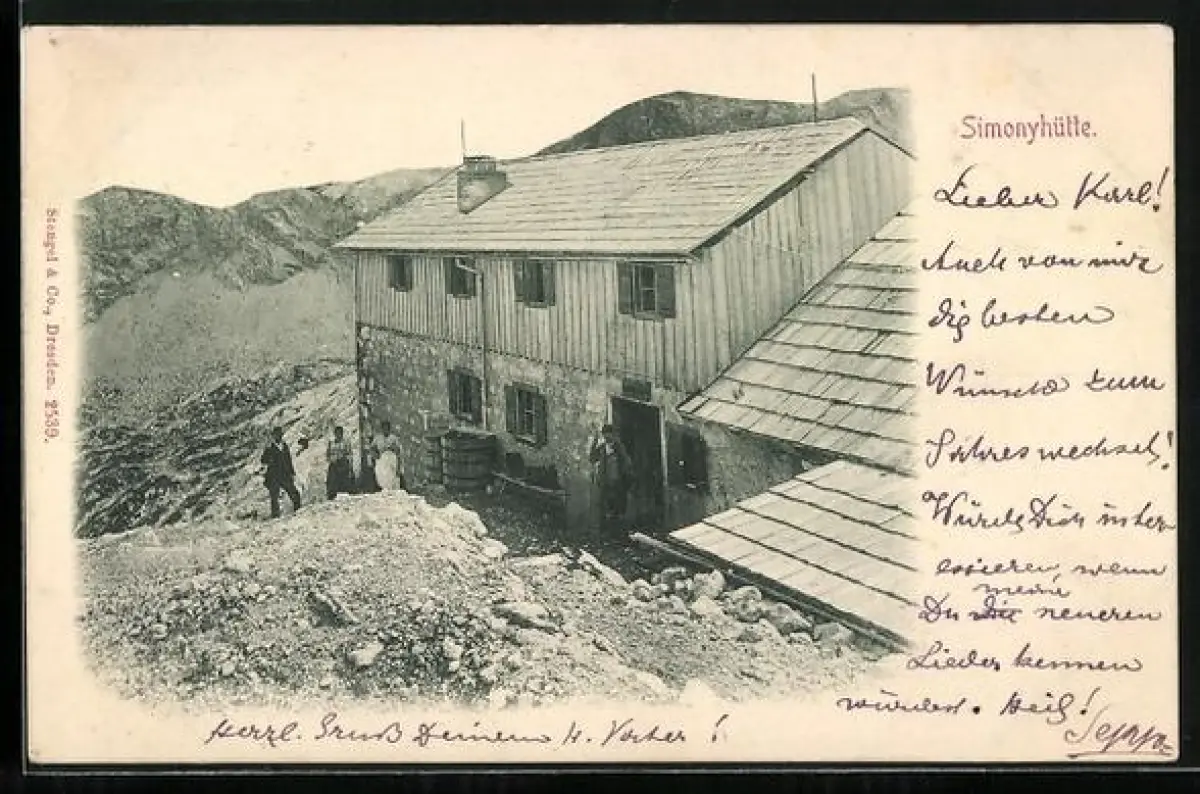 Simonyhütte.
Lieber Karl!
Auch von mir
die besten
Wünsche zum
Jahreswechsel!
Würde Dich inter
essieren, wenn
meine
Du die neueren
Lieder kennen
würdest. Heil!
Seppo
Herzl. Gruß Deinem H. Vater!
Stengel & Co., Dresden. 2539.